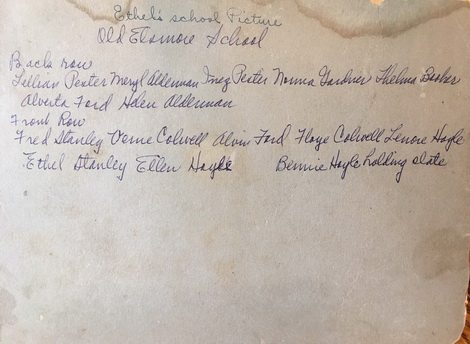 Ethel's school Picture
Old Elsmore School
Back row
Lillian Pester Meryl Alderman Inez Pester Norma Gardner Thelma Booher
Alverta Ford Helen Alderman
Front Row
Fred Stanley Verne Colwell Alvin Ford Floye Colwell Lenore Hoyle
Ethel Stanley Ellen Hoyle Bennie Hoyle holding slate